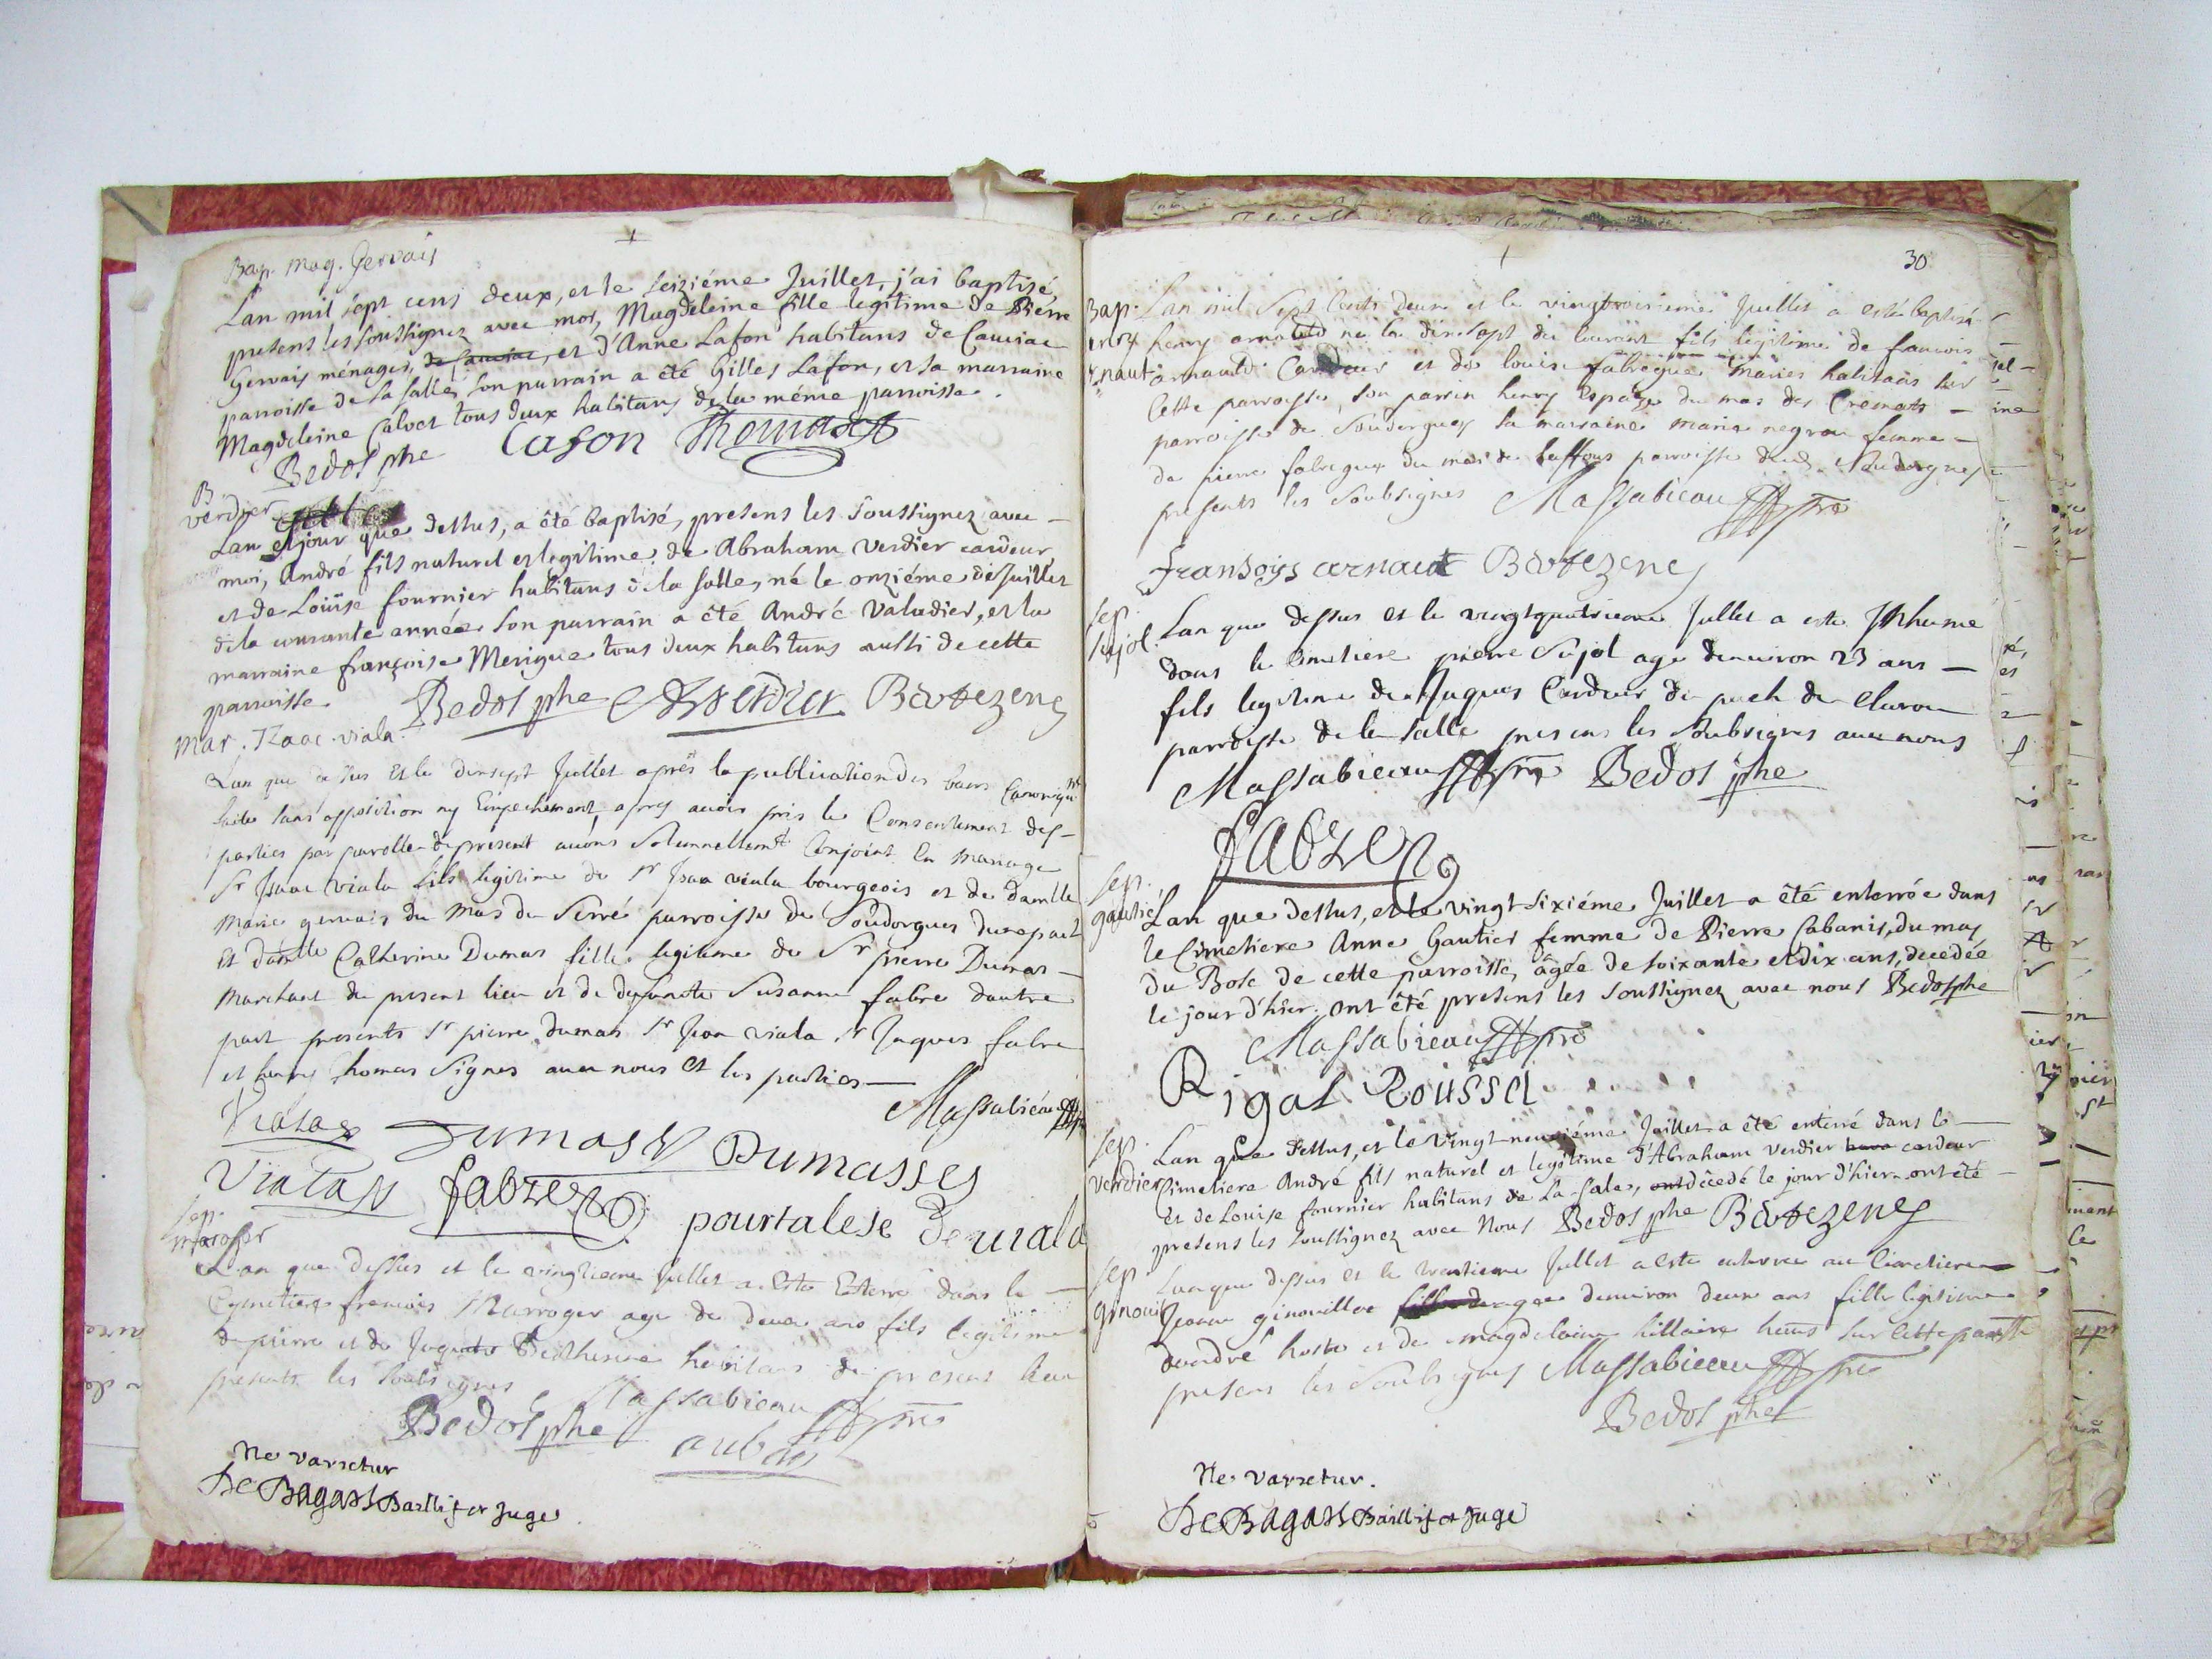 Bap. Mag. Gervais
Lan mil sept cens deux, et le seiziéme Juillet, j'ai baptisé
presens les soussignez avec moi, Magdeleine fille legitime de Pierre
Gervais ménager, de Caucia, et d'Anne Lafon habitans de Cauciac
parroisse de la Salle, son parrain a été Gilles Lafon, et sa marraine
Magdeleine Calvet tous deux habitans de la méme parroisse.
Bedos phe Lafon Thomas
B
verdier
Lan et jour que dessus, a été baptisé, presens les soussignez avec
moi, André fils naturel et legitime de Abraham Verdier cardeur,
et de Loüise fournier habitans de la Salle, né le onziéme de Juillet
de la courante année. Son parrain a été André Valadier, et la
marraine françoise Merigue tous deux habitans aussi de cette
parroisse. Bedos phe A Verdier Bartezene
Mar. Izaac viala
Lan que dessus et le dixsept Juillet aprés la publication des bans
faite sans opposition ny Empechement, apres avoir pris le Consentement des
parties par parolle de present avons Solannellemt Conjoint En Mariage
Sr Isaac viala fils legitime de Sr Jean viala bourgeois et de damlle
Marie gervais du Mas du Serré parroisse de Soudorgues dune part
Et damlle Catherine Dumas fille legitime de Sr pierre Dumas
Marchant du present lieu et de deffuncte Susanne fabre dautre
part presents Sr pierre dumas Sr Jean viala Sr Jaques fabre
et henry Thomas Signes avec nous et les parties
Massabieau pre
Vialas Dumas Dumasses
Vialas fabre pourtalese De viala
Sep.
Maroger
Lan que dessus et le vingtieme Juillet a Este Enterré dans le
Cymetiere francois Marroger age de deux ans fils legitime
de pierre et de habitans du present lieu
presents les soubsignes Massabieau pre
Bedos phe auban
Ne varietur
De Bagars Baillif et Juge
30
Bap.
Lan mil Sept Cents Deux et le vingtroisieme Juillet a esté baptisé
henry arnauld né le dixsept du courant fils legitime de francois
arnauld Cardeur et de louise fabregue maries habitans sur
Cette parroisse, son parrin henry Espaze du mas des Cremats
parroisse de Soudorgues sa marraine marie negrou femme
de pierre fabregue du mas de parroisse dud. Soudorgues
presents les Soubsignes Massabieau pre
fransoys arnaut Bartezene
Sep.
Sujol
Lan que dessus et le vingtquatrieme Jullet a este Inhumé
dans le Cimetiere pierre Sujol age denviron 23 ans
fils legitime de Jaques Cardeur du puech de
parroisse de la Salle presens les Soubsignes avec nous
Massabieau pre Bedos phe
fabre
Sep.
gautie
Lan que dessus, et le vingt-sixiéme Juillet a été enterrée dans
le Cimetiere Anne Gautier femme de Pierre Cabanis, du mas
du Bosc de cette parroisse, âgée de soixante et dix ans, decedée
le jour d'hier, ont été presens les soussignez avec nous Bedos phe
Massabieau pre
Rigal Roussel
Sep.
verdier
Lan que dessus, et le vingt-neuviéme Juillet a été enterré dans le
Cimetiere André fils naturel et legitime d'Abraham Verdier cardeur
et de Louise fournier habitans de La Sale, decedé le jour d'hier ont été
presens les soussignez avec Nous Bedos phe Bartezene
Sep
ginouil
Lan que dessus et le trantieme Jullet a este enterree au Cimetiere
Jeanne ginouillre denviron deux ans fille legitime
dandré hoste et de magdelaine hillaire sur cette parroisse
presens les Soubsignes Massabieau pre
Bedos phe
Ne varietur.
De Bagars Baillif et Juge